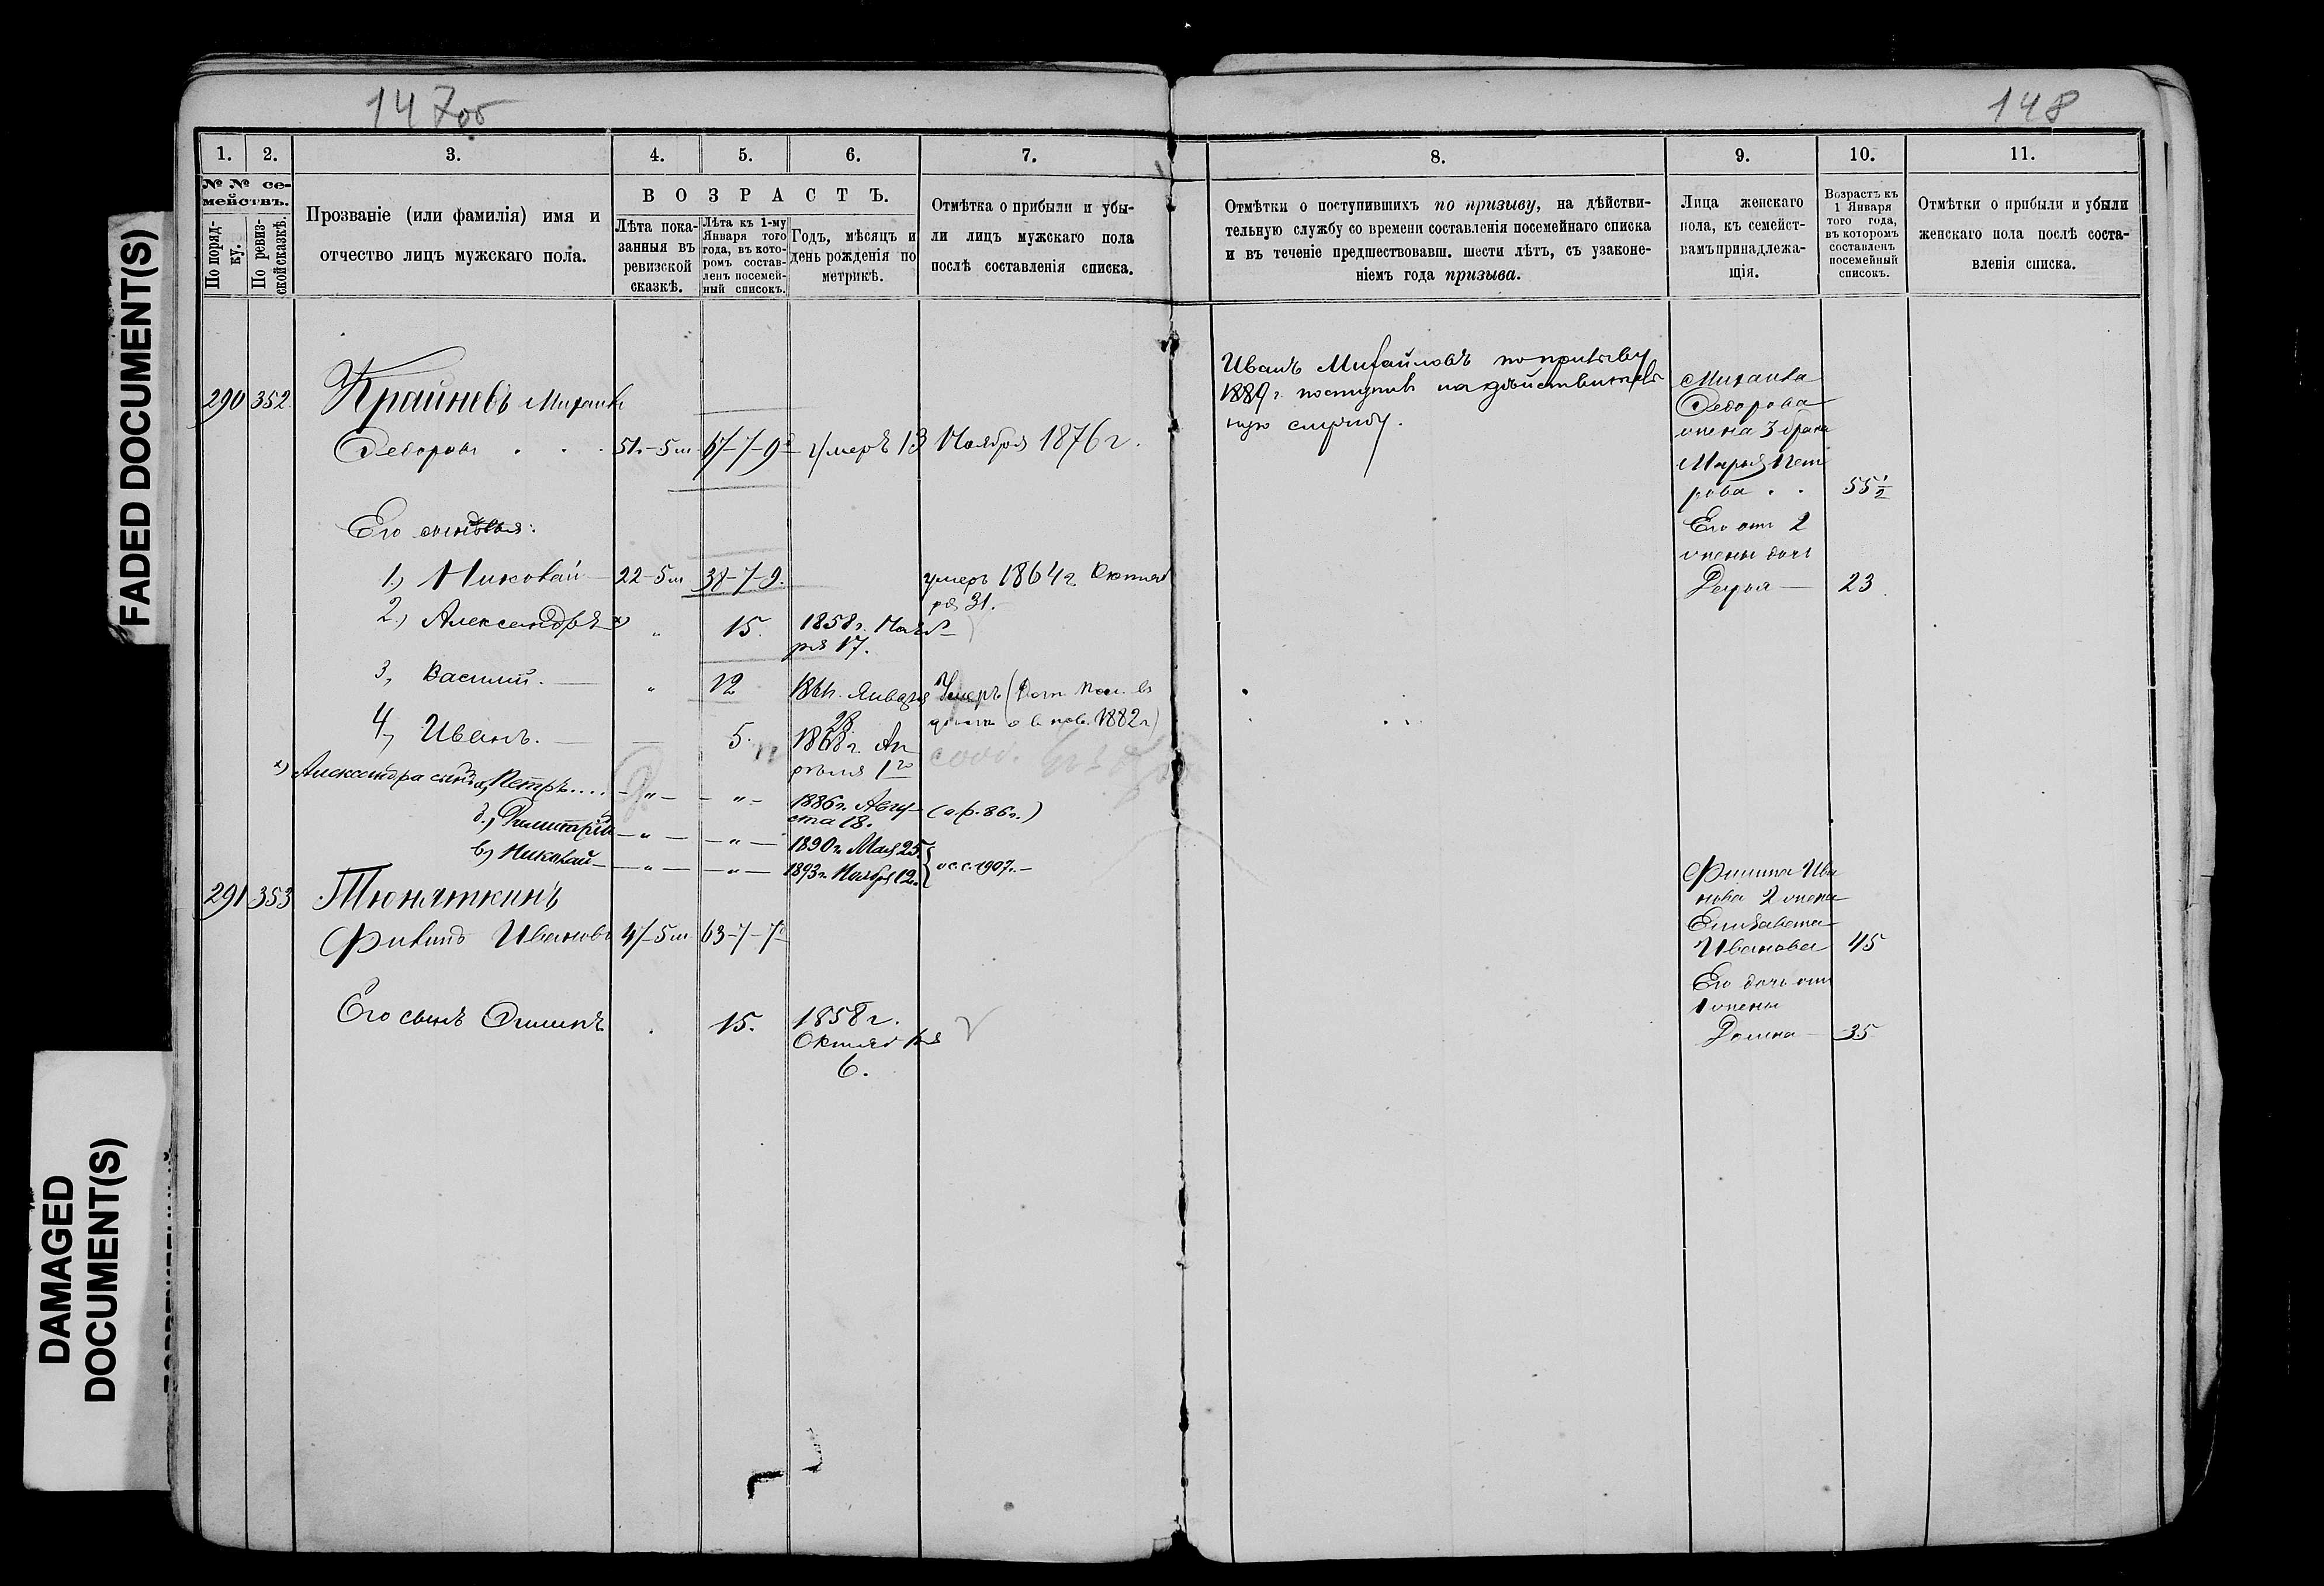 FADED DOCUMENT(S)
DAMAGED
DOCUMENT(S)
147об
1. 2. 3. 4. 5. 6. 7.
№ № се-
мействъ.
По поряд-
ку.
По ревиз-
ской сказкѣ.
Прозваніе (или фамилія) имя и
отчество лицъ мужскаго пола.
ВОЗРАСТЪ.
Лѣта пока-
занныя въ
ревизской
сказкѣ.
Лѣта къ 1-му
Января того
года, въ кото-
ромъ состав-
ленъ посемей-
ный списокъ.
Годъ, мѣсяцъ и
день рожденія по
метрикѣ.
Отмѣтка о прибыли и убы-
ли лицъ мужскаго пола
послѣ составленія списка.
290 352 Крайневъ Михаилъ
Ѳедоровъ . . . 51.-5 м 67-7-9 умеръ 13 Ноября 1876 г.
Его сыновья:
1.) Николай 22-5 м 38-7-9. умеръ 1864 г. Октяб
ря 31.
2.) Александръ х) " 15. 1858 г. Нояб
ря 17.
3, Василий. — " 12 Января Умеръ
28 1882 г.)
4, Иванъ. — 5. 1868 г. Ап
рѣля 1го
х) Александра сынья, Петръ.... — " — — " — 1886 г. Авгу-
ста 18. (а.р. 86 г.)
б.) Димитрій — " — — " — 1890 г. Мая 25.
в) Николай — — " — — " — 1893 г. Ноября 12. о.с.с. 1907 г. —
291 353 Тюняткинъ
Филипъ Ивановъ 47-5 м 63-7-7
Его сынъ . 15. 1858 г.
Октяб ря
6.
148
8. 9. 10. 11.
Отмѣтки о поступившихъ по призыву, на дѣйстви-
тельную службу со времени составленія посемейнаго списка
и въ теченіе предшествовавш. шести лѣтъ, съ узаконе-
ніемъ года призыва.
Лица женскаго
пола, къ семейст-
вамъ принадлежа-
щія.
Возрастъ къ
1 Января
того года,
въ которомъ
составленъ
посемейный
списокъ.
Отмѣтки о прибыли и убыли
женскаго пола послѣ соста-
вленія списка.
Иванъ Михайловъ по призыву
1889 г. поступилъ на дѣйствитель
ную службу.
Михаила
Ѳедорова
жена 3 брака
Марья Пет
рова . . 55 1/2
Его отъ 2
жены дочь
Дарья — 23
Филипа Ива
нова 2 жена
Елизавета
Иванова 45
Его дочь отъ
1 жены
Домна — 35